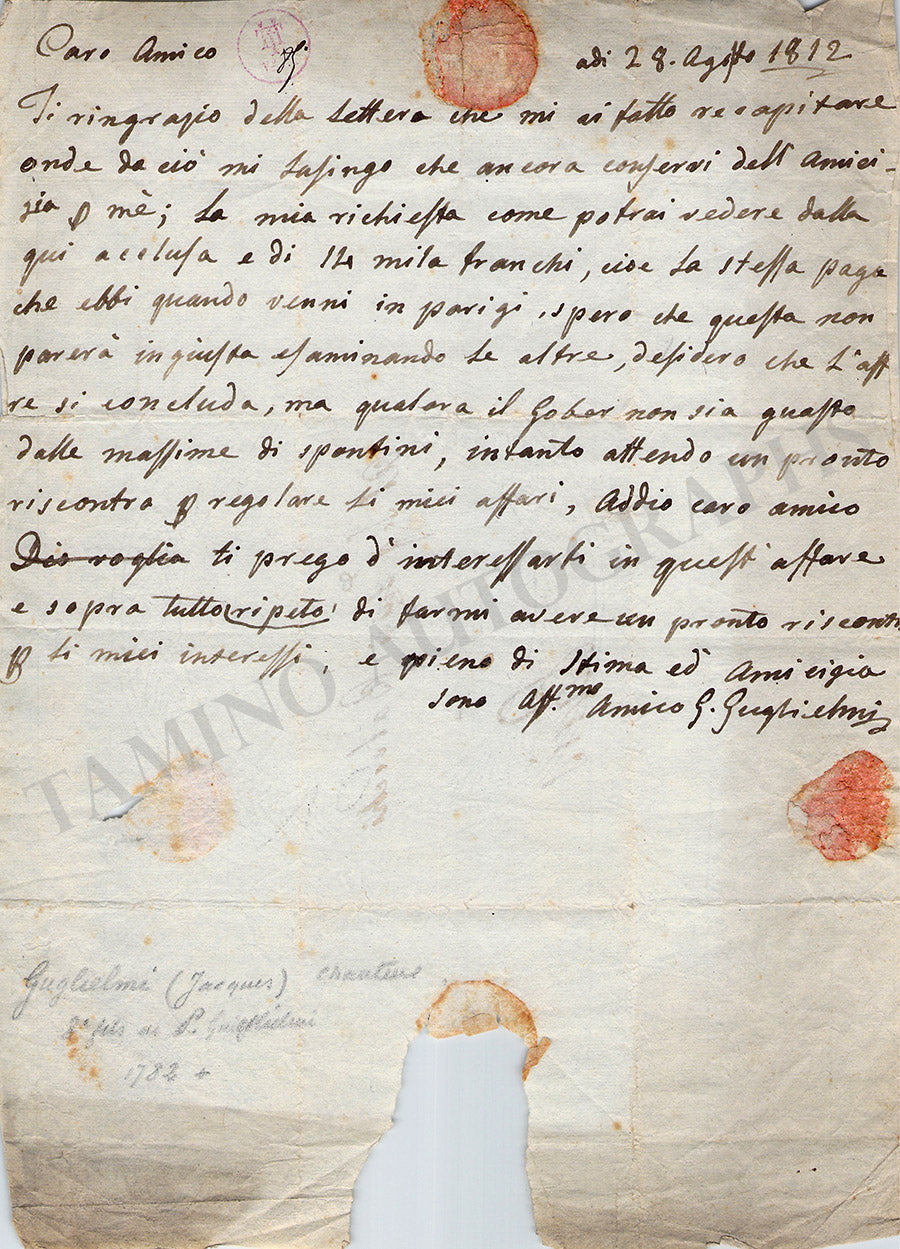 Caro Amico adi 28. Agosto 1812
Ti ringrazio della Lettera che mi ai fatto recapitare
onde da ciò mi Lusingo che ancora conservi dell' Amici-
zia p mè; La mia richiesta come potrai vedere dalla
qui acclusa e di mila franchi, cioe La stessa paga
che ebbi quando venni in parigi, spero che questa non
parerà ingiusta esaminando Le altre, desidero che L'aff
re si concluda, ma qualora il non sia guasto
dalle massime di spontini, intanto attendo un pronto
riscontro p regolare Li miei affari, Addio caro amico
ti prego d'interessarti in quest' affare
e sopra tutto (ripeto) di farmi avere un pronto riscontr
p Li miei interessi; e pieno di Stima ed Amicizia
sono Aff.mo Amico G. Guglielmi
TAMINO AUTOGRAPHS
Guglielmi (Jacques) chanteur
2e fils de P. Guglielmi
1782 +